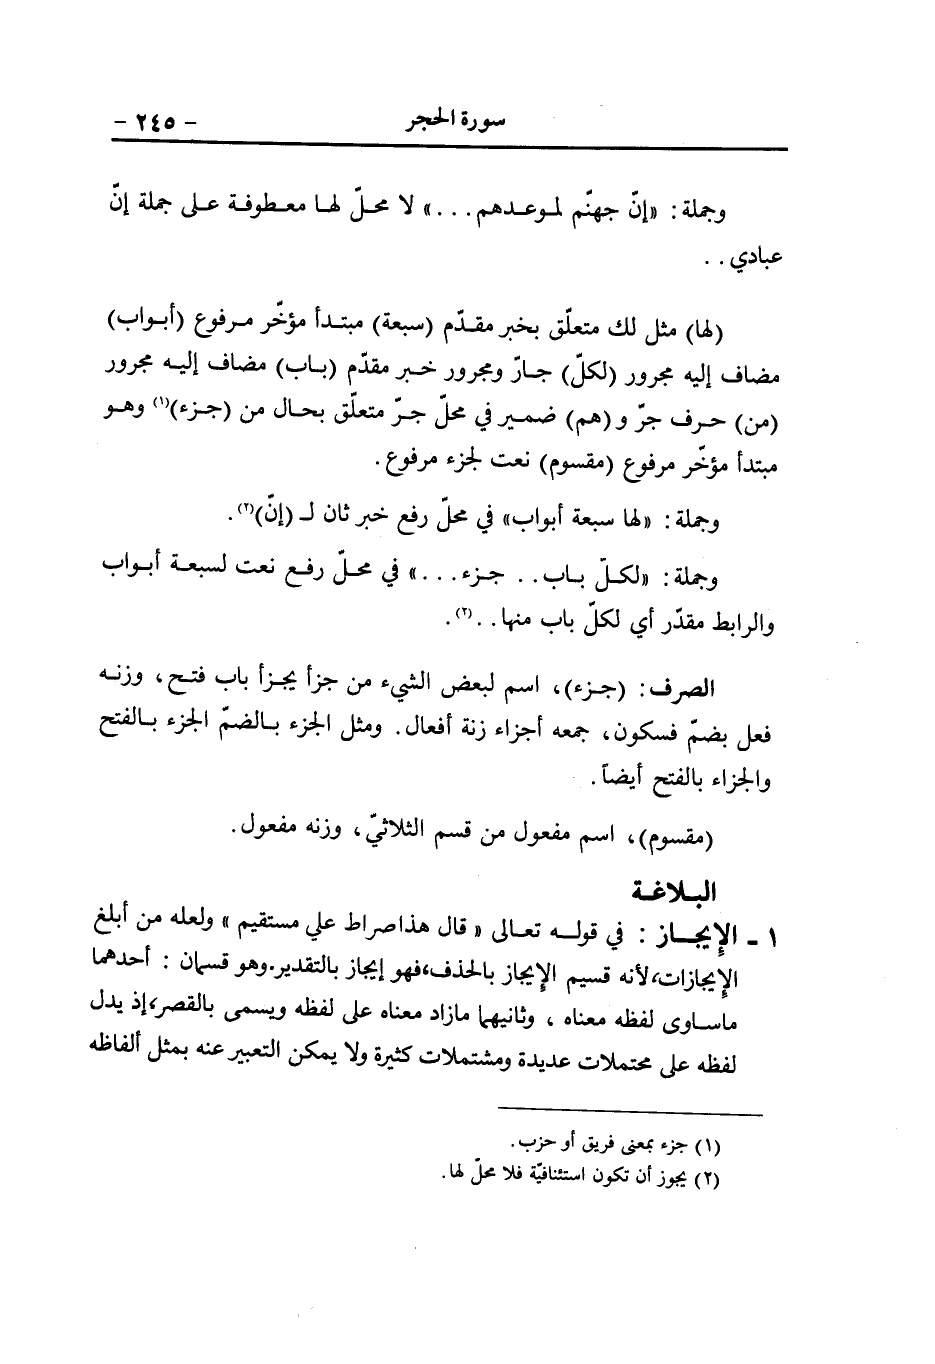 سورة الحجر - ٢٤٥ -
وجملة: «إنّ جهنّم لموعدهم...» لا محلّ لها معطوفة على جملة إنّ
عبادي..
(لها) مثل لك متعلّق بخبر مقدّم (سبعة) مبتدأ مؤخّر مرفوع (أبواب)
مضاف إليه مجرور (لكلّ) جارّ ومجرور خبر مقدّم (باب) مضاف إليه مجرور
(من) حرف جرّ و(هم) ضمير في محلّ جرّ متعلّق بحال من (جزء)(١) وهو
مبتدأ مؤخّر مرفوع (مقسوم) نعت لجزء مرفوع.
وجملة: «لها سبعة أبواب» في محلّ رفع خبر ثان لـ (إنّ)(٢).
وجملة: «لكلّ باب.. جزء...» في محلّ رفع نعت لسبعة أبواب
والرابط مقدّر أي لكلّ باب منها..(٢).
الصرف: (جزء)، اسم لبعض الشيء من جزأ يجزأ باب فتح، وزنه
فعل بضمّ فسكون، جمعه أجزاء زنة أفعال. ومثل الجزء بالضمّ الجزء بالفتح
والجزاء بالفتح أيضاً.
(مقسوم)، اسم مفعول من قسم الثلاثيّ، وزنه مفعول.
البلاغة
١ - الإيجاز : في قوله تعالى « قال هذا صراط علي مستقيم » ولعله من أبلغ
الإيجازات، لأنه قسيم الإيجاز بالحذف، فهو إيجاز بالتقدير. وهو قسمان : أحدهما
ماساوى لفظه معناه ، وثانيهما مازاد معناه على لفظه ويسمى بالقصر، إذ يدل
لفظه على محتملات عديدة ومشتملات كثيرة ولا يمكن التعبير عنه بمثل ألفاظه
(١) جزء بمعنى فريق أو حزب.
(٢) يجوز أن تكون استئنافيّة فلا محلّ لها.